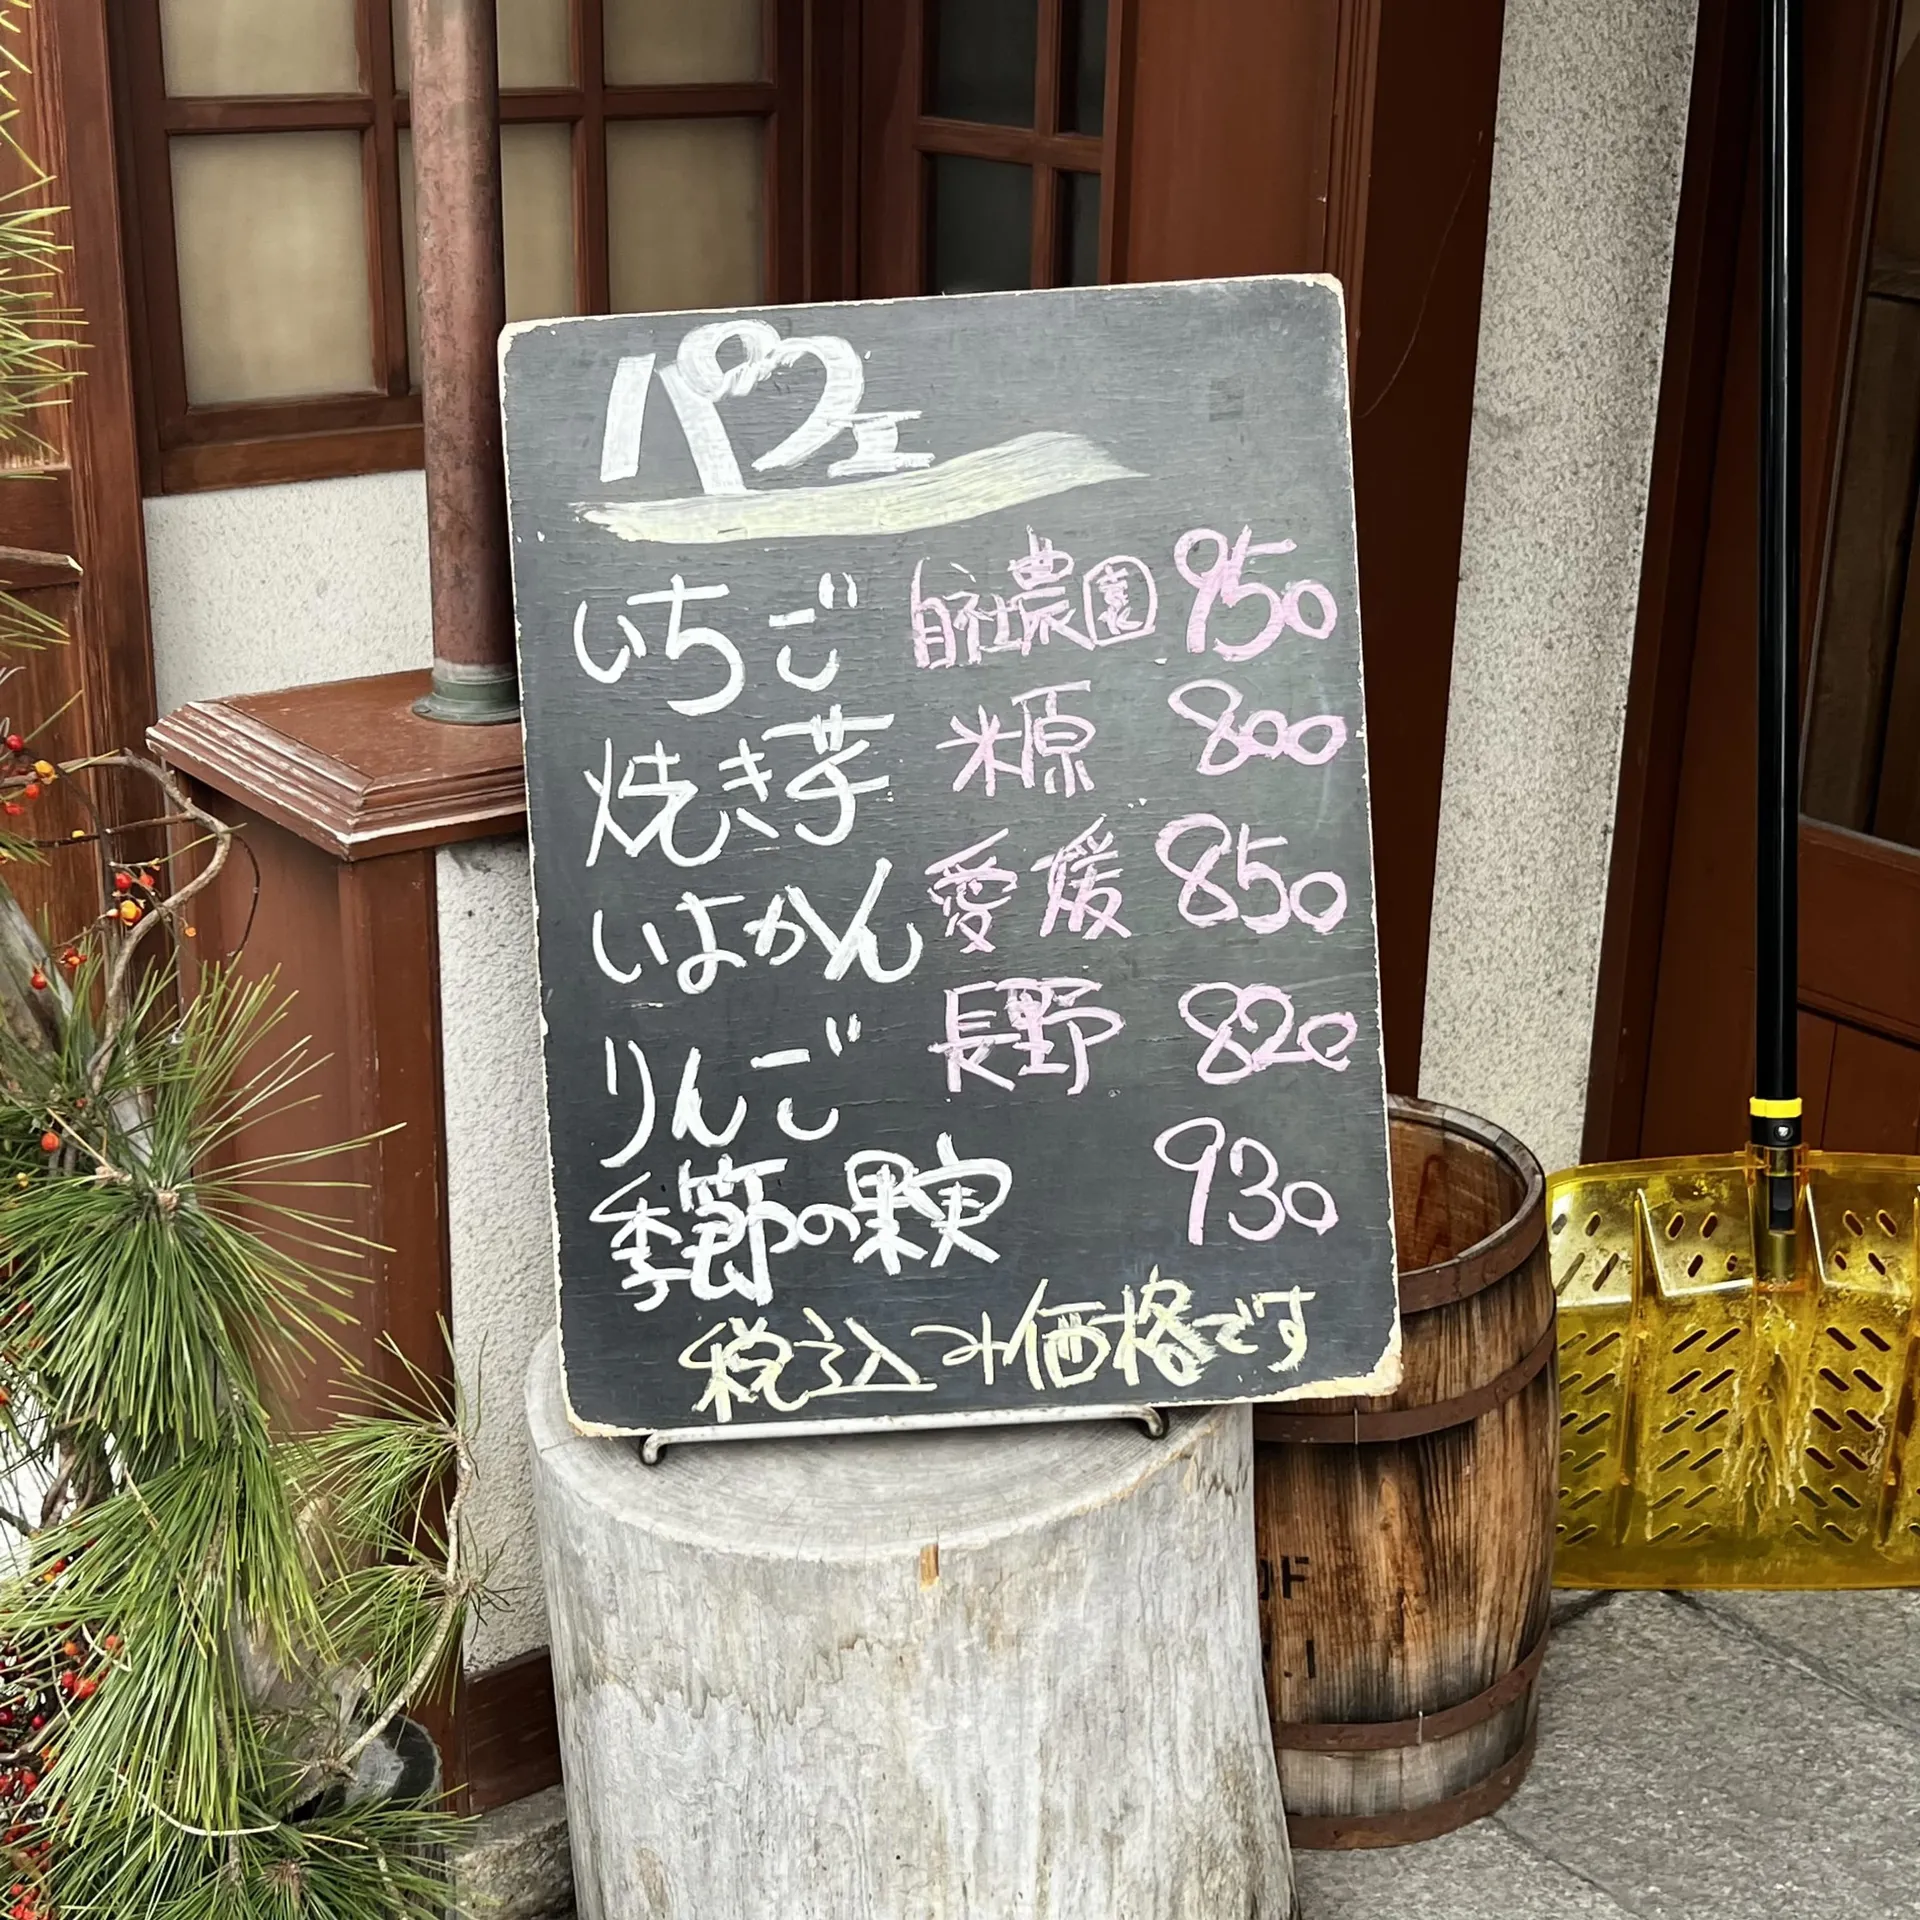 パフェ
いちご 自社農園 950
焼き芋 米原 800
いよかん 愛媛 850
りんご 長野 820
季節の果実 930
税込み価格です
OF